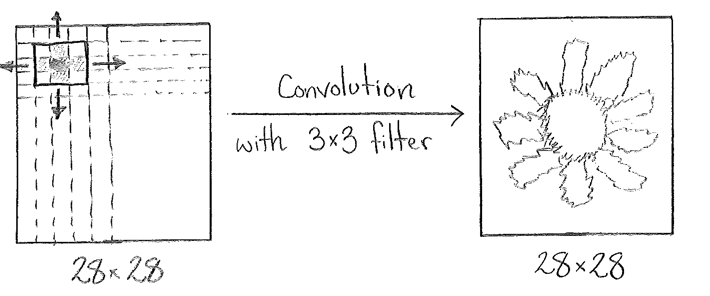 Convolution
with 3×3 filter
28×28
28×28